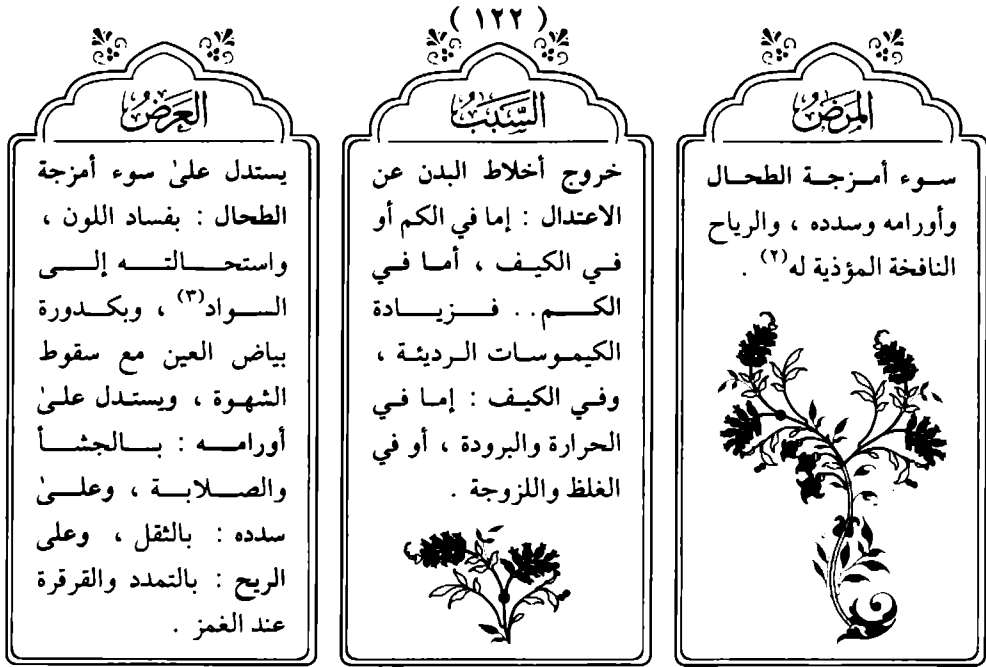 ( ١٢٢ )
المرض
سوء أمزجة الطحال
وأورامه وسدده ، والرياح
النافخة المؤذية له(٢) .
السبب
خروج أخلاط البدن عن
الاعتدال : إما في الكم أو
في الكيف ، أما في
الكم.. فزيادة
الكيموسات الرديئة ،
وفي الكيف : إما في
الحرارة والبرودة ، أو في
الغلظ واللزوجة .
العرض
يستدل علىٰ سوء أمزجة
الطحال : بفساد اللون ،
واستحالته إلى
السواد(٣) ، وبكدورة
بياض العين مع سقوط
الشهوة ، ويستدل علىٰ
أورامه : بالجشأ
والصلابة ، وعلىٰ
سدده : بالثقل ، وعلى
الريح : بالتمدد والقرقرة
عند الغمز .